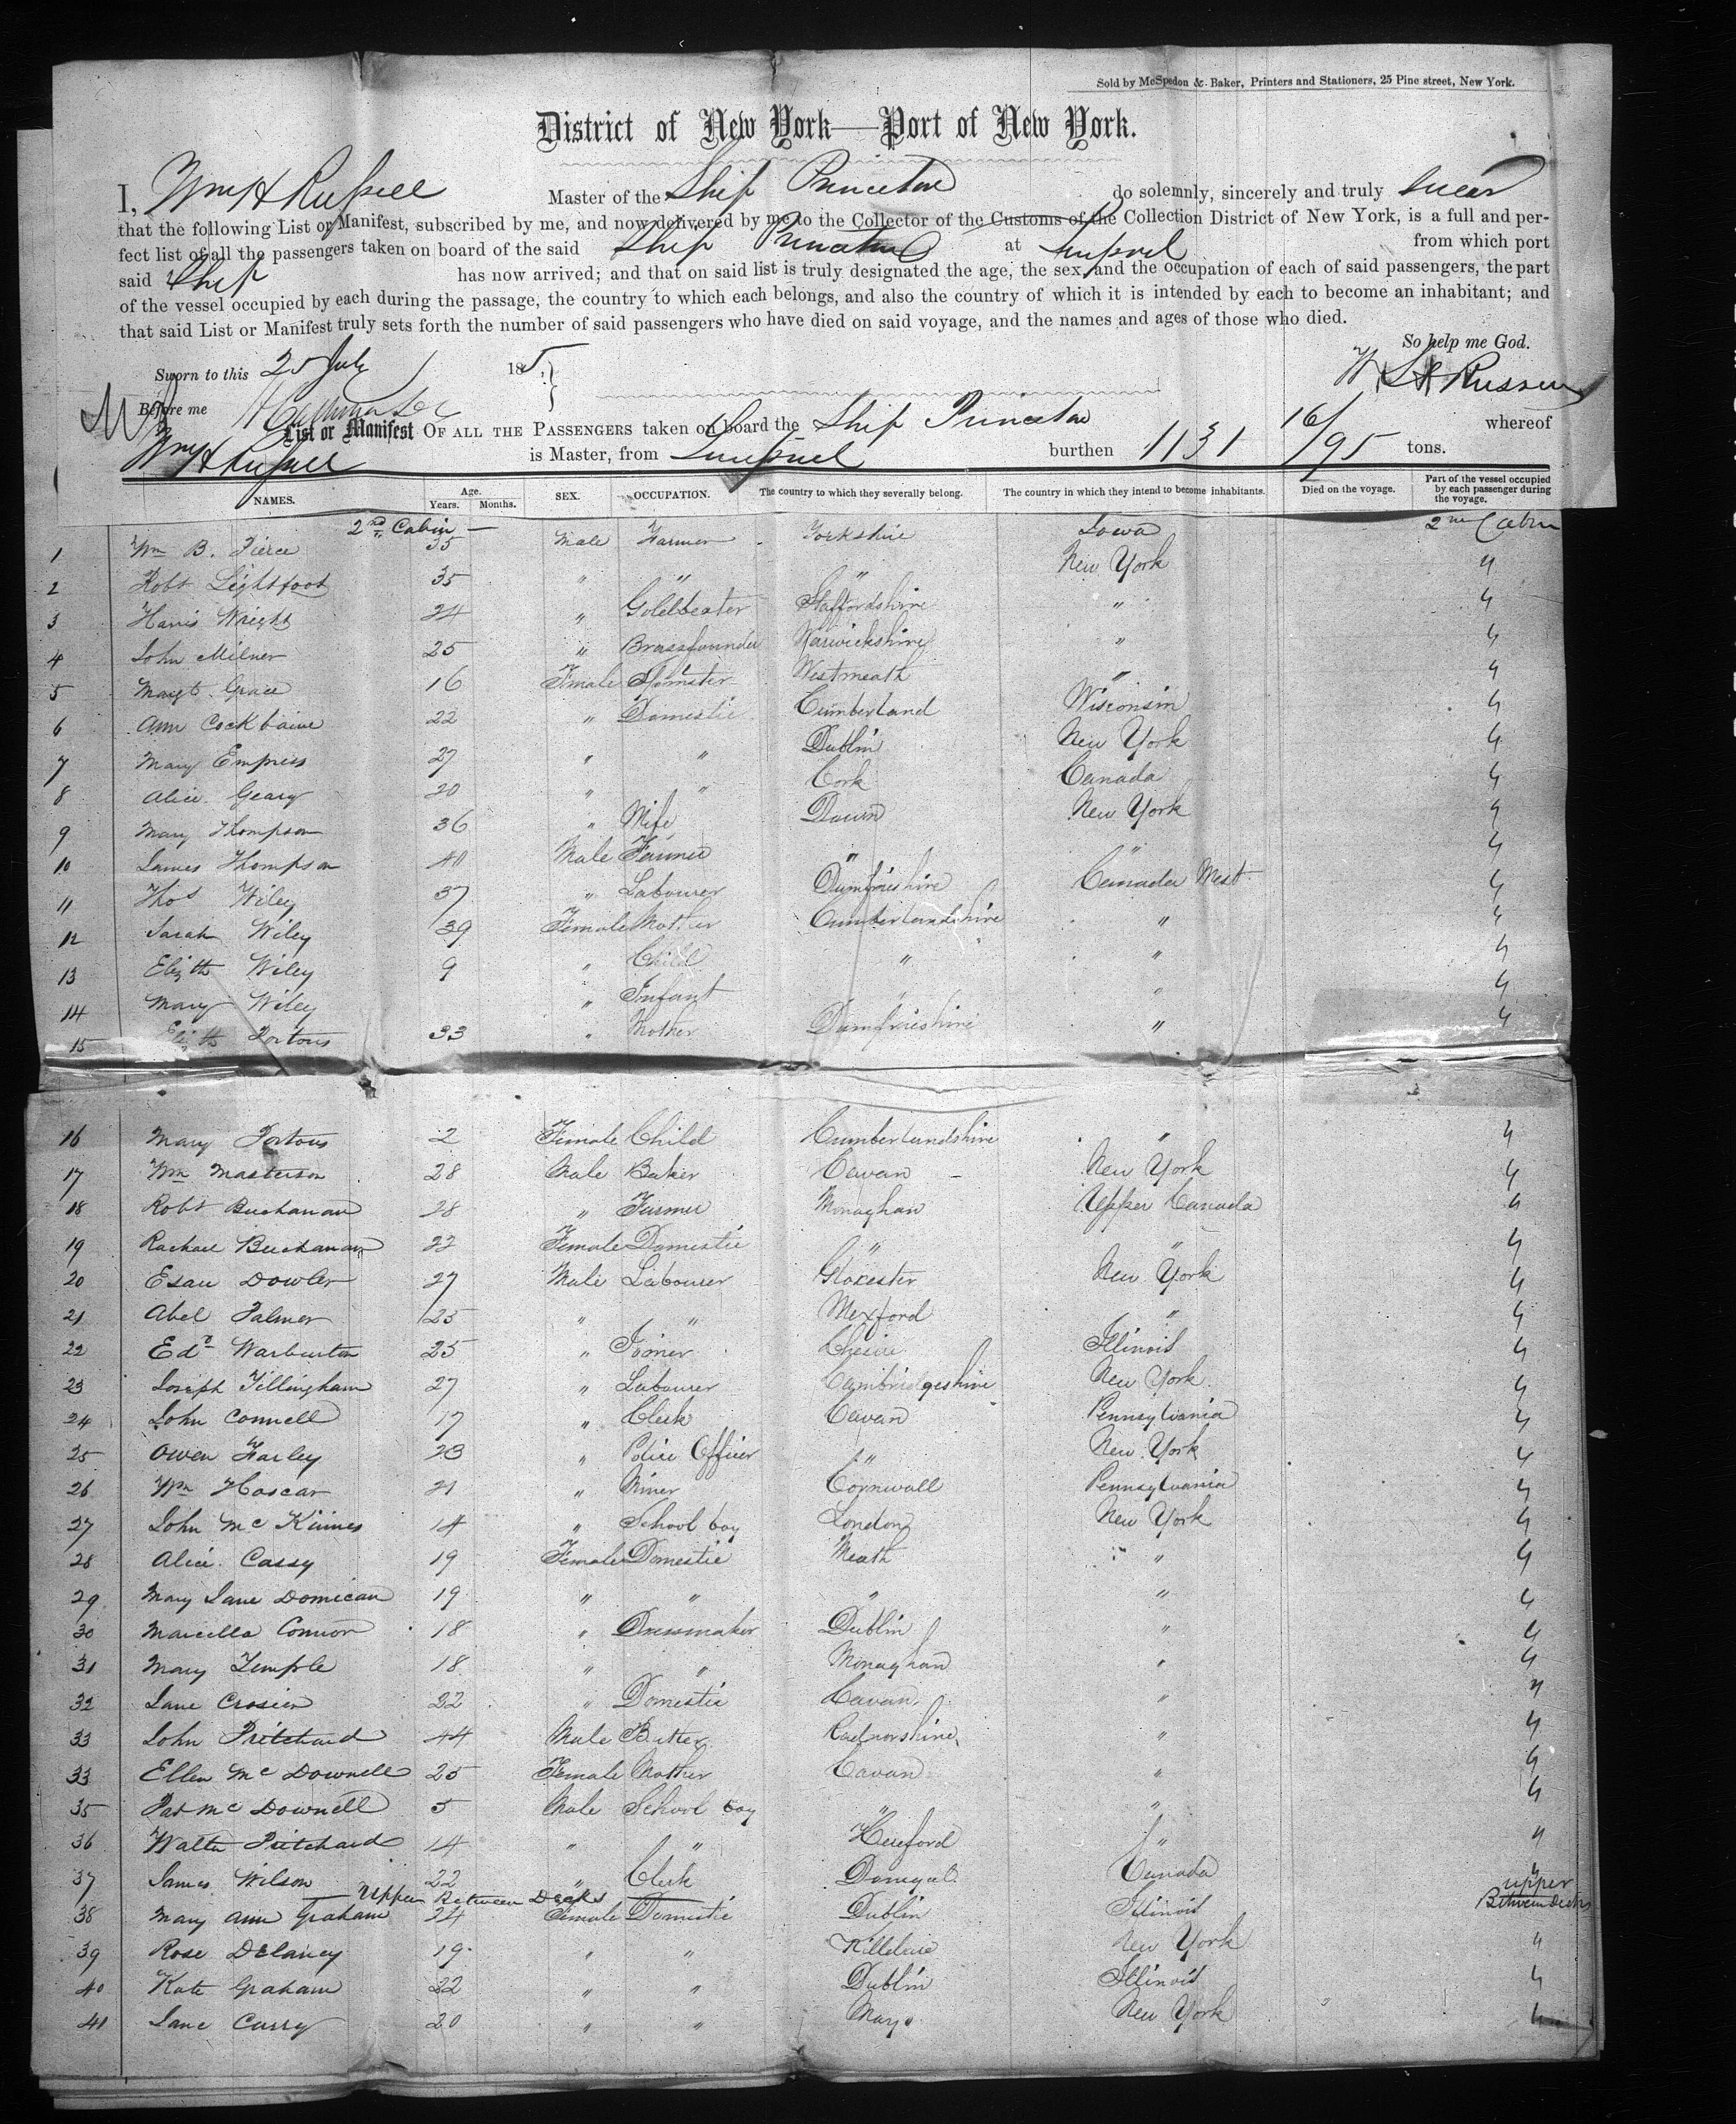 Sold by McSpedon & Baker, Printers and Stationers, 25 Pine street, New York.
District of New York—Port of New York.
I, Wm H Russell Master of the Ship Princeton do solemnly, sincerely and truly swear
that the following List or Manifest, subscribed by me, and now delivered by me to the Collector of the Customs of the Collection District of New York, is a full and per-
fect list of all the passengers taken on board of the said Ship Princeton at Liverpool from which port
said Ship has now arrived; and that on said list is truly designated the age, the sex, and the occupation of each of said passengers, the part
of the vessel occupied by each during the passage, the country to which each belongs, and also the country of which it is intended by each to become an inhabitant; and
that said List or Manifest truly sets forth the number of said passengers who have died on said voyage, and the names and ages of those who died.
So help me God.
Sworn to this 25 July 185
Before me
W H Russell
List or Manifest OF ALL THE PASSENGERS taken on board the Ship Princeton whereof
Wm H Russell is Master, from Liverpool burthen 1131 16/95 tons.
NAMES. Age. Years. Months. SEX. OCCUPATION. The country to which they severally belong. The country in which they intend to become inhabitants. Died on the voyage. Part of the vessel occupied by each passenger during the voyage.
2nd Cabin —
1 Wm B. Pierce 35 Male Farmer Yorkshire Iowa 2nd Cabin
2 Robt Lightfoot 35 " " " New York "
3 Harris Wright 24 " Goldbeater Staffordshire " "
4 John Milner 25 " Brassfounder Warwickshire " "
5 Margt Grace 16 Female Spinster Westmeath " "
6 Ann Cockbaine 22 " Domestic Cumberland Wisconsin "
7 Mary Empress 27 " " Dublin New York "
8 Alice Geary 20 " " Cork Canada "
9 Mary Thompson 36 " Wife Down New York "
10 James Thompson 40 Male Farmer " " "
11 Thos Wiley 37 " Labourer Dumfrieshire Canada West "
12 Sarah Wiley 39 Female Mother Cumberlandshire " "
13 Elizth Wiley 9 " Child " " "
14 Mary Wiley " Infant " " "
15 Elizth Portous 33 " Mother Dumfrieshire " "
16 Mary Portous 2 Female Child Cumberlandshire " "
17 Wm Masterson 28 Male Baker Cavan New York "
18 Robt Buchanan 28 " Farmer Monaghan Upper Canada "
19 Rachael Buchanan 22 Female Domestic " " "
20 Esau Dowler 27 Male Labourer Glocester New York "
21 Abel Palmer 25 " " Wexford " "
22 Edd Warburton 25 " Joiner Chesire Illinois "
23 Joseph Tillingham 27 " Labourer Cambridgeshire New York "
24 John Connell 17 " Clerk Cavan Pennsylvania "
25 Owen Farley 23 " Police Officer " New York "
26 Wm Hoscar 21 " Miner Cornwall Pennsylvania "
27 John McKinnes 14 " School boy London New York "
28 Alice Cassy 19 Female Domestic Meath " "
29 Mary Jane Domican 19 " " " " "
30 Marcella Connor 18 " Dressmaker Dublin " "
31 Mary Temple 18 " " Monaghan " "
32 Jane Crosier 22 " Domestic Cavan " "
33 John Pritchard 44 Male Radnorshire " "
33 Ellen McDownell 25 Female Mother Cavan " "
35 Pat McDownell 5 Male School boy " " "
36 Walter Pritchard 14 " " Hereford " "
37 James Wilson 22 " Clerk Donegal Canada "
— Upper Between Decks —
38 Mary Ann Graham 24 Female Domestic Dublin Illinois upper Between Decks
39 Rose Delaney 19 " " New York "
40 Kate Graham 22 " " Dublin Illinois "
41 Jane Curry 20 " " Mayo New York "